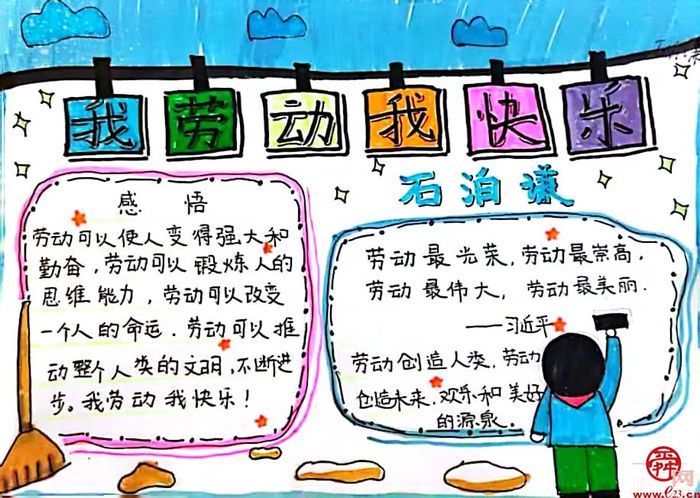 我劳动我快乐
石泊谦
感悟
劳动可以使人变得强大和
勤奋，劳动可以锻炼人的
思维能力，劳动可以改变
一个人的命运．劳动可以推
动整个人类的文明，不断进
步。我劳动我快乐！
劳动最光荣，劳动最崇高，
劳动最伟大，劳动最美丽．
——习近平
劳动创造人类，劳动
创造未来，欢乐和美好
的源泉．
舜网
e23.cn